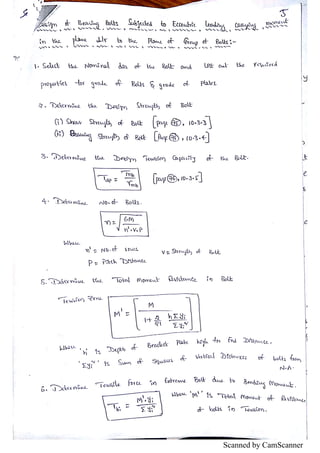 5
Design of Bearing Bolts Subjected to Eccentric Loading Carrying moment
in the plane Ular to the Plane of Group of Bolts:-
1. Select the Nominal dia of the Bolt and list out the required
properties for grade of Bolts & grade of plates.
2. Determine the Design Strength of Bolt
(i) Shear Strength of Bolt [page 75, 10.3.3]
(ii) Bearing Strength of Bolt [Page 75, 10.3.4]
3. Determine the Design Tension Capacity of the Bolt.
Tdb = Tnb / γmb [page 76, 10.3.5]
4. Determine No. of Bolts.
n = √ 6M / n'.V.P
Where
n' = No. of rows V = Strength of Bolt
P = Pitch Distance
5. Determine the Total Moment Resistance in Bolt
Tension Zone
M' = [ M / 1 + 2/21 h Σyi / Σyi² ]
Where 'h' is Depth of Bracket Plate high for End Distance.
'Σyi²' is Sum of Squares of Vertical Distances of bolts from
N.A.
6. Determine Tensile force in Extreme Bolt due to Bending Moment.
Tbi = M'.yi / Σyi² Where 'M'' is Total Moment of Resistance
of bolts in Tension.
Scanned by CamScanner